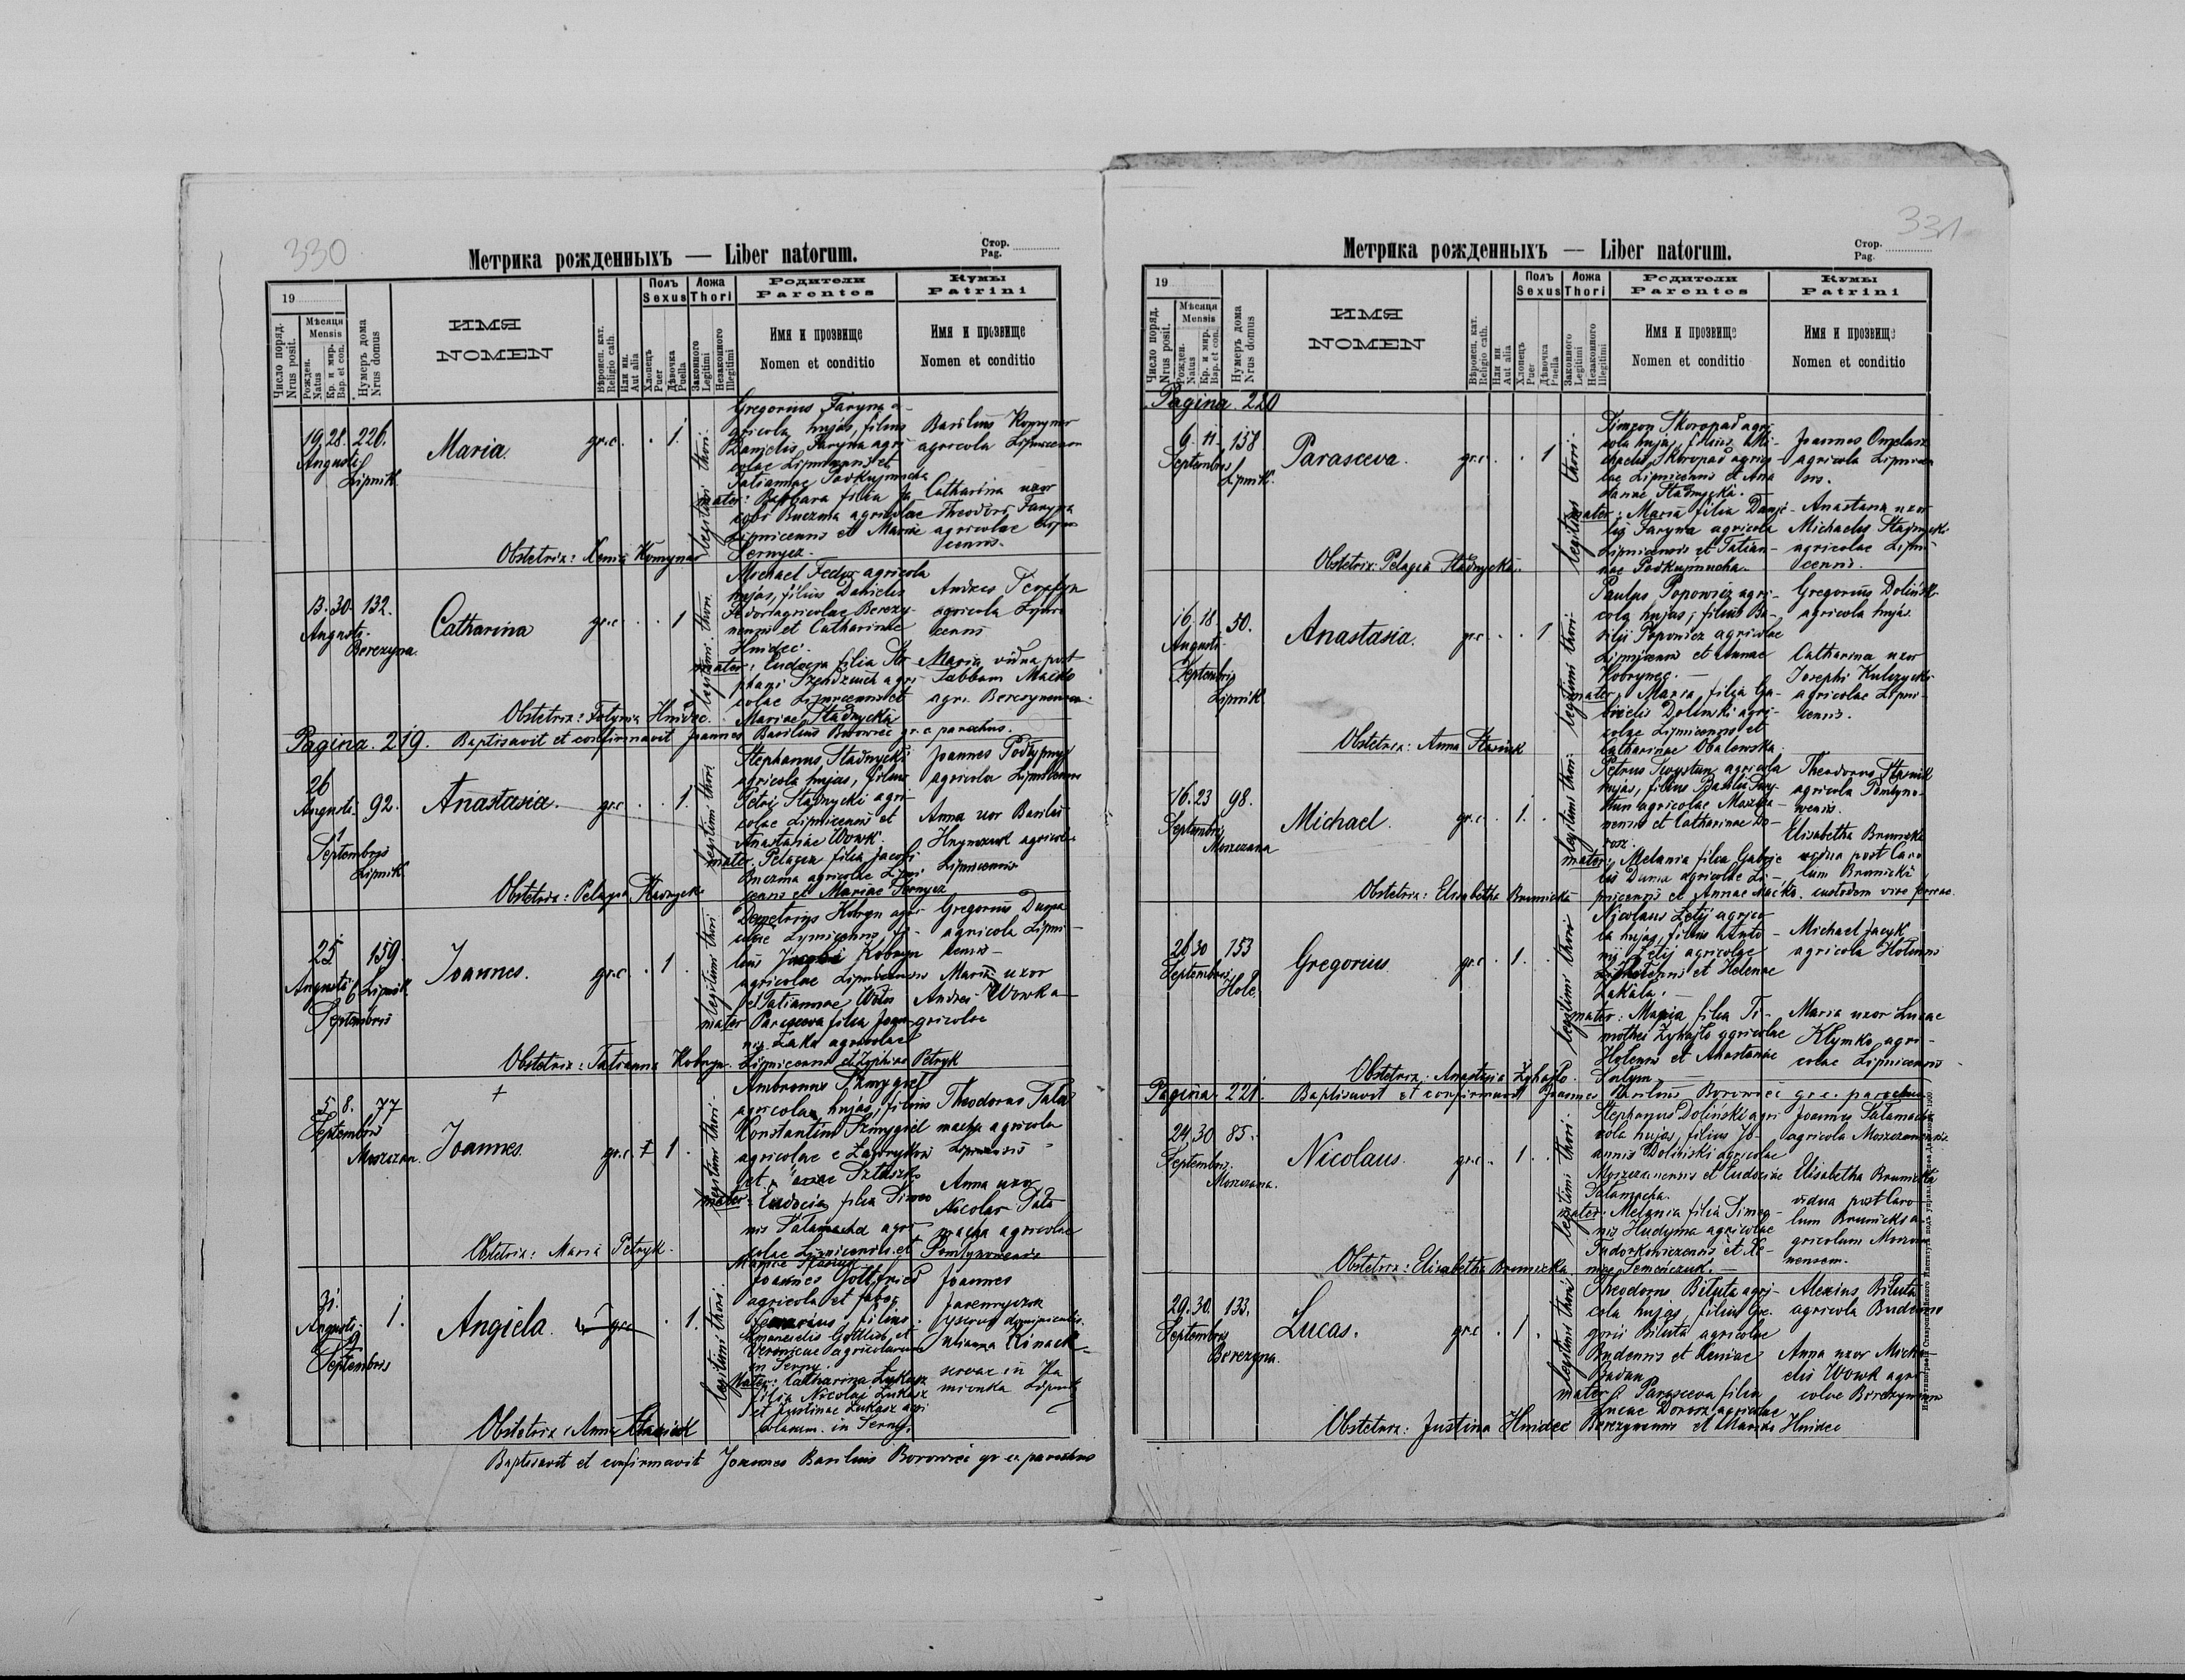 330
Метрика рожденныхъ — Liber natorum.
Стор.
Pag.
19
Число поряд.
Nrus posit.
Мѣсяця
Mensis
Рожден.
Natus
Кр. и мир.
Bap. et con.
Нумеръ дома
Nrus domus
ИМЯ
NOMEN
Вѣроисп. кат.
Religio cath.
Или ин.
Aut alia
Полъ
Sexus
Хлопецъ
Puer
Дѣвочка
Puella
Ложа
Thori
Законного
Legitimi
Незаконного
Illegitimi
Родители
Parentes
Имя и прозвище
Nomen et conditio
Кумы
Patrini
Имя и прозвище
Nomen et conditio
19. 28. 226.
Augusti
Lipnik
Maria.
gr.c. . 1.
legitimi thori.
Gregorius Faryna a-
gricola hujas, filius
Danielis Faryna agri-
colae Lipnicensis et
Tatiannae Podkujmucha
mater: Barbara filia Ja
cobi Buczma agricolae
Lipnicensis et Mariae
Sernycz.
Basilius Komynar
agricola Lipnicensis
Catharina uxor
Theodori Faryna
agricolae Lipni
censis.
Obstetrix: Xenia Komynar
13. 30. 132.
Augusti.
Berezyna.
Catharina
gr.c . . 1
legitimi thori.
Michael Fedor agricola
hujas, filius Danielis
Fedor agricolae Berezy-
nensis et Catharinae
Hnidec.
mater: Eudocia filia Ste
phani Szendziuch agri-
colae Lipnicensis et
Mariae Stadnycka
agricola Lipni
censis
Maria vidua post
Sabbam Macko
agri. Berezynensem
Obstetrix: Fotynia Hnidec.
Pagina. 219. Baptisavit et confirmavit Joannes Basilius Borowiec gr. c. parochus.
26
Augusti. 92.
1
Septembris
Lipnik
Anastasia.
gr.c . . 1.
legitimi thori
Stephanus Stadnycki
agricola hujas, filius
Petri Stadnycki agri-
colae Lipnicensis et
Anastasiae Wowk.
mater. Pelagia filia Jacobi
Buczma agricolae Lipni
censis et Mariae Sernycz
Joannes
agricola Lipnicensis
Anna uxor Basilii
agricolae
Lipnicensis
Obstetrix: Pelagia Stadnycka
25 159.
Augusti 6 Lipnik
Septembris
Joannes.
gr.c . 1 .
legitimi thori
Demetrius Kobryn agri
colae Lipnicensis, fi-
lius Jacobi Kobryn
agricolae Lipnicensis
et Tatiannae
mater Parasceva filia Joan
nis Laka agricolae
Lipnicensis et Zophiae Petryk
Gregorius
agricola Lipni-
censis
Maria uxor
Andreas Wowk a
gricolae
Obstetrix: Tatianna Kobryn.
+
5 8. 77
Septembris
Moszczan.
Joannes.
gr.c. 1 .
legitimi thori.
Ambrosius Szmygiel
agricolae hujas, filius
Konstantini Szmygiel
agricolae e
et
mater: Eudocia filia Simeo
nis Tatamacha agri
colae Lipnicensis et
Mariae
Theodorus Tata
macha agricola
Lipnicensis
Anna uxor
Nicolai Tata
macha agricolae
Obstetrix: Maria Petryk.
31.
Augusti. 1.
9
Septembris
Angiela.
gr.c . 1.
legitimi thori.
Joannes Gottfried
agricola et faber
filius
Emanuelis Gottlieb et
Veronicae agricolarum
in Serny.
Mater: Catharina Lukasz
filia Nicolai Lukasz
et Justinae Lukasz agri
colarum in Serny.
Joannes
Julianna Kinach
servae in Ka
mionka Lipnik
Obstetrix: Anna Stasiuk
Baptisavit et confirmavit Joannes Basilius Borowiec gr. c. parochus
331
Метрика рожденныхъ — Liber natorum.
Стор.
Pag.
19
Число поряд.
Nrus posit.
Мѣсяця
Mensis
Рожден.
Natus
Кр. и мир.
Bap. et con.
Нумеръ дома
Nrus domus
ИМЯ
NOMEN
Вѣроисп. кат.
Religio cath.
Или ин.
Aut alia
Полъ
Sexus
Хлопецъ
Puer
Дѣвочка
Puella
Ложа
Thori
Законного
Legitimi
Незаконного
Illegitimi
Родители
Parentes
Имя и прозвище
Nomen et conditio
Кумы
Patrini
Имя и прозвище
Nomen et conditio
Pagina. 220
6. 11. 158
Septembris
Lipnik.
Parasceva.
gr.c. . . 1
legitimi thori.
Simeon Skoropad agri
cola hujas, filius Mi-
chaelis Skoropad agrico
lae Lipnicensis et Ana
stasiae Stadnycka.
mater: Maria filia Danie-
lis Faryna agricola
Lipnicensis et Tatian-
nae Podkujmucha.
Joannes
agricola Lipnicen
sis.
Anastasia uxor
Michaelis Stadnycki
agricolae Lipni
censis.
Obstetrix: Pelagia Stadnycka.
16. 18. 50.
Augusti.
Septembris
Lipnik
Anastasia.
gr.c . . 1
legitimi thori.
Paulus Popowicz agri-
cola hujas, filius Ba-
silii Popowicz agricolae
Lipnicensis et Annae
Kobrynec. —
mater: Maria filia Ga-
brielis Dolinski agri-
colae Lipnicensis et
Catharinae Obalowska.
Gregorius Doliński
agricola hujas.
Catharina uxor
Josephi Kulczycki
agricolae Lipni-
censis.
Obstetrix: Anna Stasiuk
16. 23 98.
Septembris
Moszczana
Michael.
gr.c . 1. .
legitimi thori.
Petrus Swystun agricola
hujas, filius Basilii Swy-
stun agricolae Moszcza-
nensis et Catharinae
mater: Melania filia Gabrie
lis Duma agricolae Li-
pnicensis et Annae Macko.
Theodorus Stasiuk
agricola
Elisabetha Brunicka
vidua post Caro
lum Brunicki
custodem viae ferreae.
Obstetrix: Elisabetha Brunicka
26 30 153
Septembris
Hole.
Gregorius.
gr.c . 1. .
legitimi thori
Nicolaus Letij agrico
la hujas, filius Anto-
nij Letij agricolae
Holensis et Helenae
Zakala. —
mater: Maria filia Ti-
mothei Zyhajlo agricolae
Holensis et Anastasiae
Michael Jacyk
agricola Holensis
Maria uxor Lucae
Klymko agri-
colae Lipnicensis
Obstetrix: Anastasia Zyhajlo.
Pagina. 221. Baptisavit et confirmavit Joannes Basilius Borowiec gr. c. parochus
24. 30 85.
Septembris.
Moszczana.
Nicolaus.
gr.c. . 1. .
legitimi thori.
Stephanus Doliński agri
cola hujas, filius Jo-
annis Doliński agricolae
Moszczanensis et Eudociae
Tatamacha.
mater: Melania filia Simeo-
nis Hudyma agricolae
Fudorkowiczensis et Xe-
niae Semenczuk. —
Joannes Tatamacha
agricola Moszczanensis
Elisabetha Brunicka
vidua post Caro
lum Brunicki a-
gricolam Moszcza
nensem.
Obstetrix: Elisabetha Brunicka
29. 30. 133.
Septembris
Berezyna.
Lucas.
gr.c . 1 .
legitimi thori
Theodorus Biluta agri-
cola hujas, filius Gre-
gorii Biluta agricolae
Budensis et Xeniae
Badan
mater: Parasceva filia
Lucae agricolae
Berezynensis et Mariae Hnidec
Alexius Biluta
agricola Budensis
Anna uxor Micha-
elis Wowk agri
colae Berezynensis
Obstetrix: Justina Hnidec